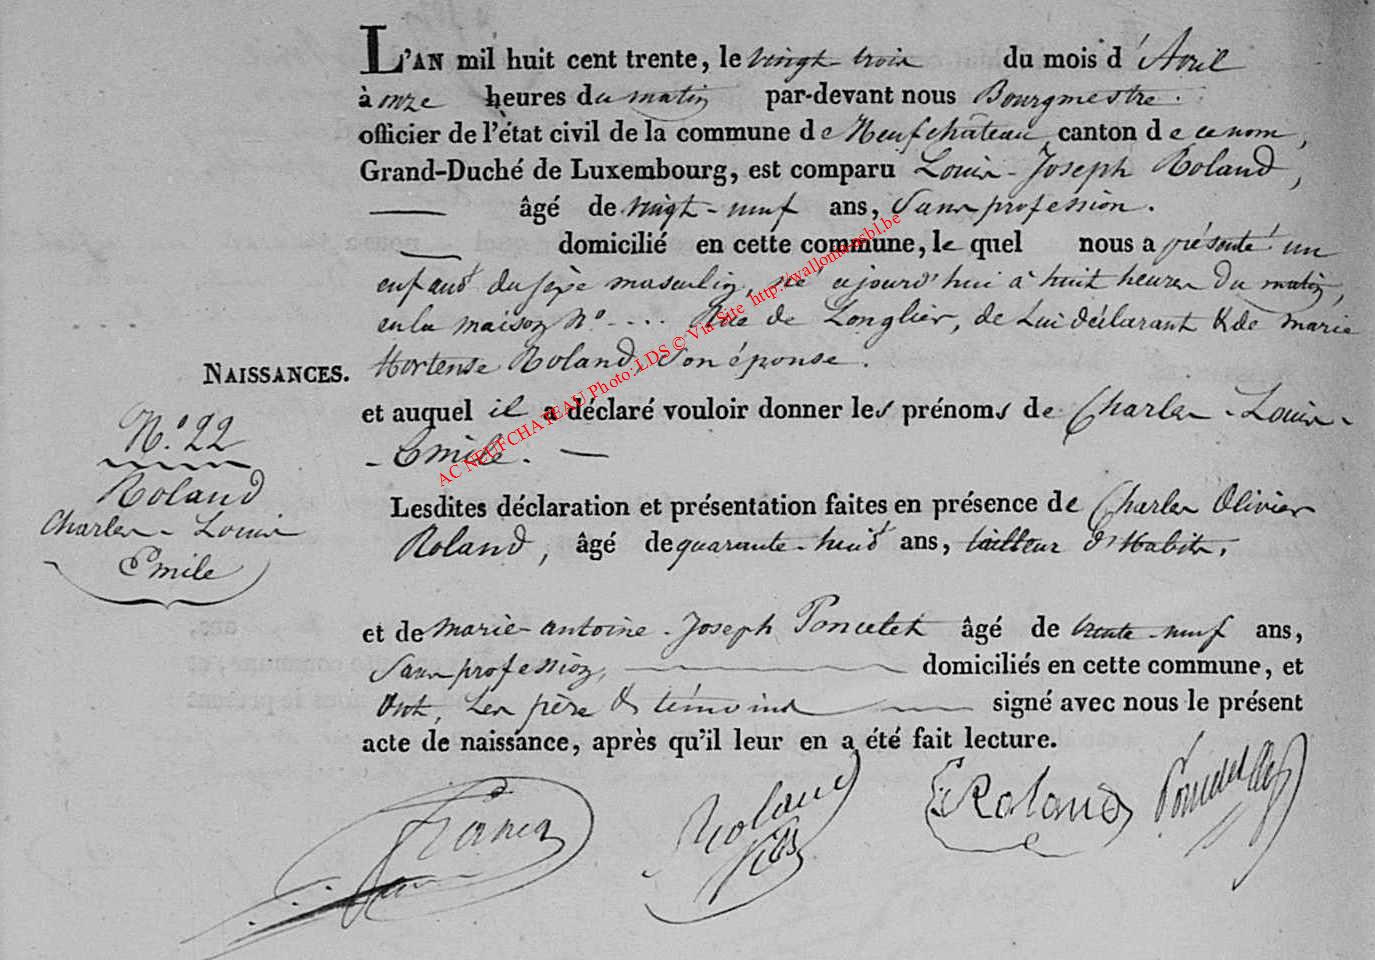 L'AN mil huit cent trente, le vingt-trois du mois d'Avril
à onze heures du matin par-devant nous Bourgmestre.
officier de l'état civil de la commune de Neufchâteau, canton de ce nom,
Grand-Duché de Luxembourg, est comparu Louis-Joseph Roland,
âgé de vingt-neuf ans, Sans profession.
domicilié en cette commune, le quel nous a présenté un
enfant du sexe masculin, né aujourd'hui à huit heures du matin,
en la maison N° .... Rue de Longlier, de Lui déclarant & de marie
Hortense Roland, Son épouse.
NAISSANCES.
et auquel il a déclaré vouloir donner les prénoms de Charles-Louis-
-Emile. —
N.° 22
Roland
Charles-Louis
Emile
Lesdites déclaration et présentation faites en présence de Charles Olivier
Roland, âgé de quarante-huit ans, tailleur d'Habits,
et de marie-antoine-Joseph Poncelet âgé de trente-neuf ans,
Sans profession, domiciliés en cette commune, et
Ont, Les père & témoins signé avec nous le présent
acte de naissance, après qu'il leur en a été fait lecture.
Roland fils
Roland
AC NEUFCHATEAU Photo: LDS © Via Site http://walloniaasbl.be